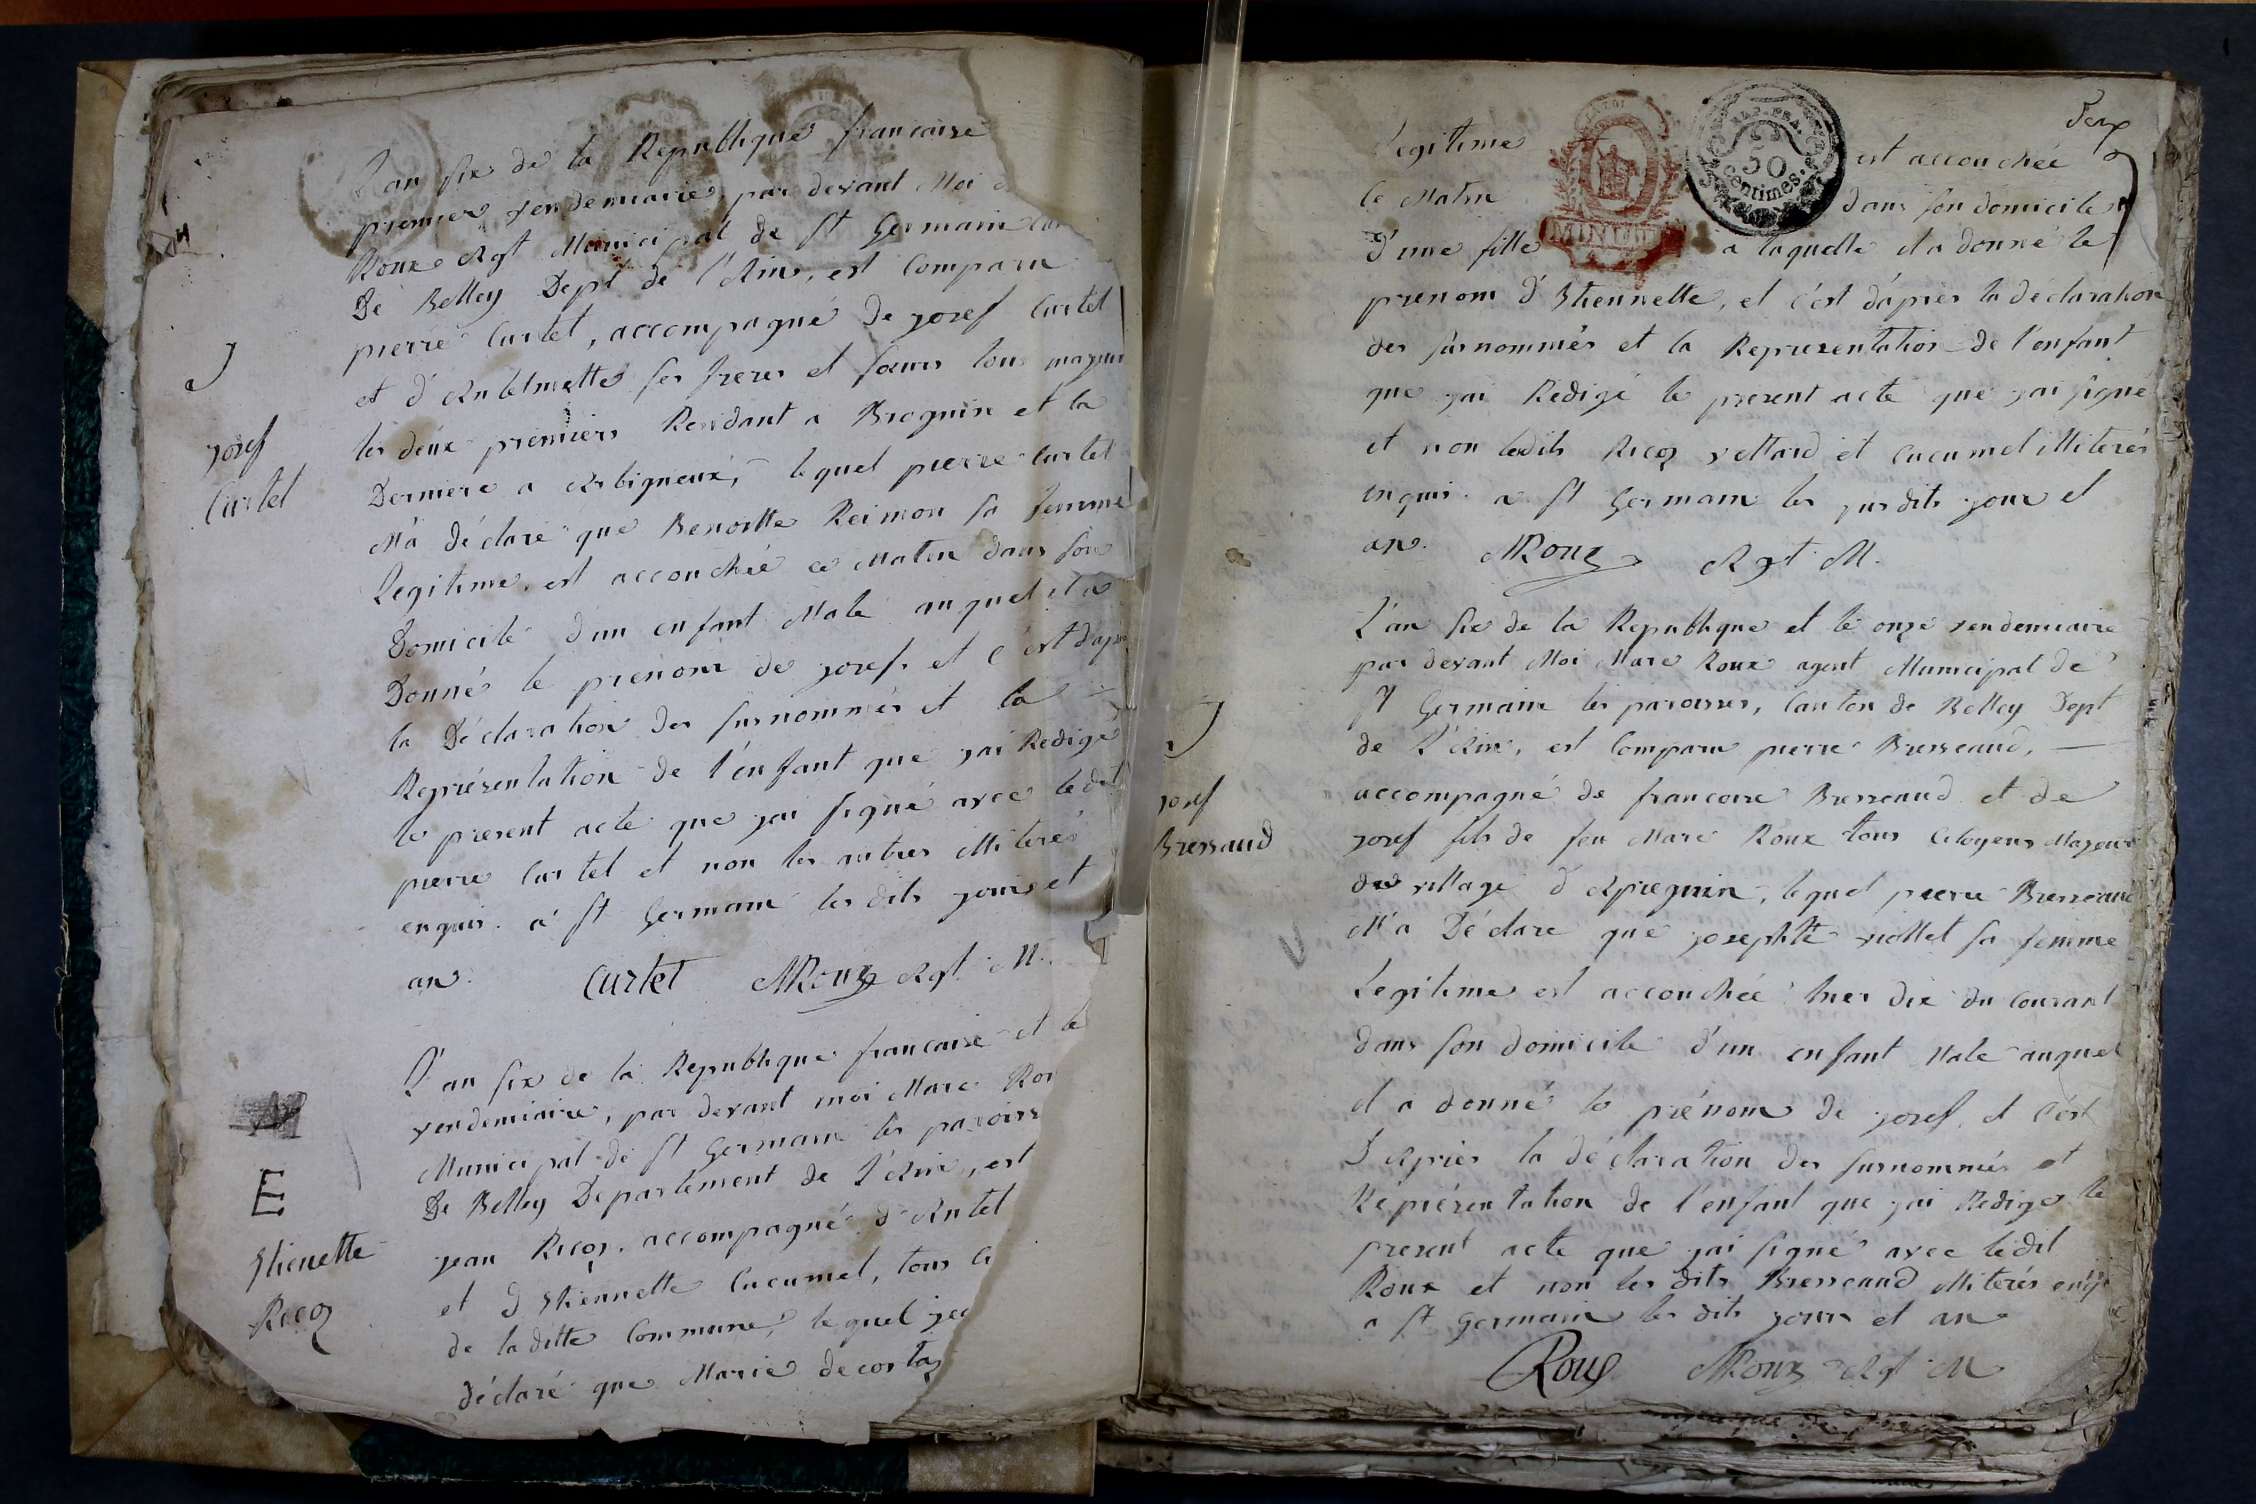 L'an six de la Republique francaise
premier vendemiaire, par devant Moi
Roux Agt Municipal de St Germain
De Belley Dept de l'Ain, est Comparu
pierre Curtet, accompagné De josef Curtet
et d'Antelmette ses freres et sœurs tous majeurs
les deux premiers Residant a Brognin et la
Derniere a Arbigneux, lequel pierre Curtet
M'a déclaré que Benoitte Reimon sa femme
Legitime, est accouchée ce Matin dans son
Domicile d'un enfant Male auquel il a
Donné le prenom de josef, et c'est d'après
la Déclaration des surnommés et la
Représentation de l'enfant que j'ai Redigé
le present acte que j'ai signé avec ledit
pierre Curtet et non les autres illiterés
enquis. a St Germain les dits jours et
an.
Curtet MRoux Agt M.
J
josef
Curtet
L'an six de la Republique francaise et le
vendemiaire, par devant moi Marc Rou
Municipal de St Germain les paroiss
De Belley Departement de l'Ain, est
jean Ricoz, accompagné d'Antel
et d'Etiennette Cucumel, tous ci
de laditte Commune, lequel jea
déclaré que Marie decosta
E
Etienette
Ricoz
Deux
Legitime est accouchée
Ce Matin dans son domicile
d'une fille a laquelle il a donné le
prenom d'Etiennette, et c'est d'après la déclaration
des surnommés et la Representation de l'enfant
que j'ai Redigé le present acte que j'ai signé
et non lesdits Ricoz vettard et Cucumel illiterés
enquis. a St Germain les susdits jour et
an. MRoux Agt M.
MINUTE
REP. FRA.
50
centimes.
L'an six de la Republique et le onze vendemiaire
par devant Moi Marc Roux agent Municipal de
St Germain les paroisses, Canton de Belley Dept
de l'Ain, est Comparu pierre Bresseaud,
accompagné de francoise Bresseaud et de
josef fils de feu Marc Roux tous Citoyens Majeurs
du village d'Apregnin, lequel pierre Bresseaud
M'a Déclaré que josephte viollet sa femme
Legitime est accouchée hier dix du Courant
dans son domicile d'un enfant Male auquel
il a donné le prénom de josef, et c'est
D'Après la déclaration des surnommés et
Réprésentation de l'enfant que j'ai Redigé le
present acte que j'ai signé avec ledit
Roux et non les dits Bresseaud illiterés enqs
a St Germain les dits jours et an
Roux MRoux Agt M
J
josef
Bressaud